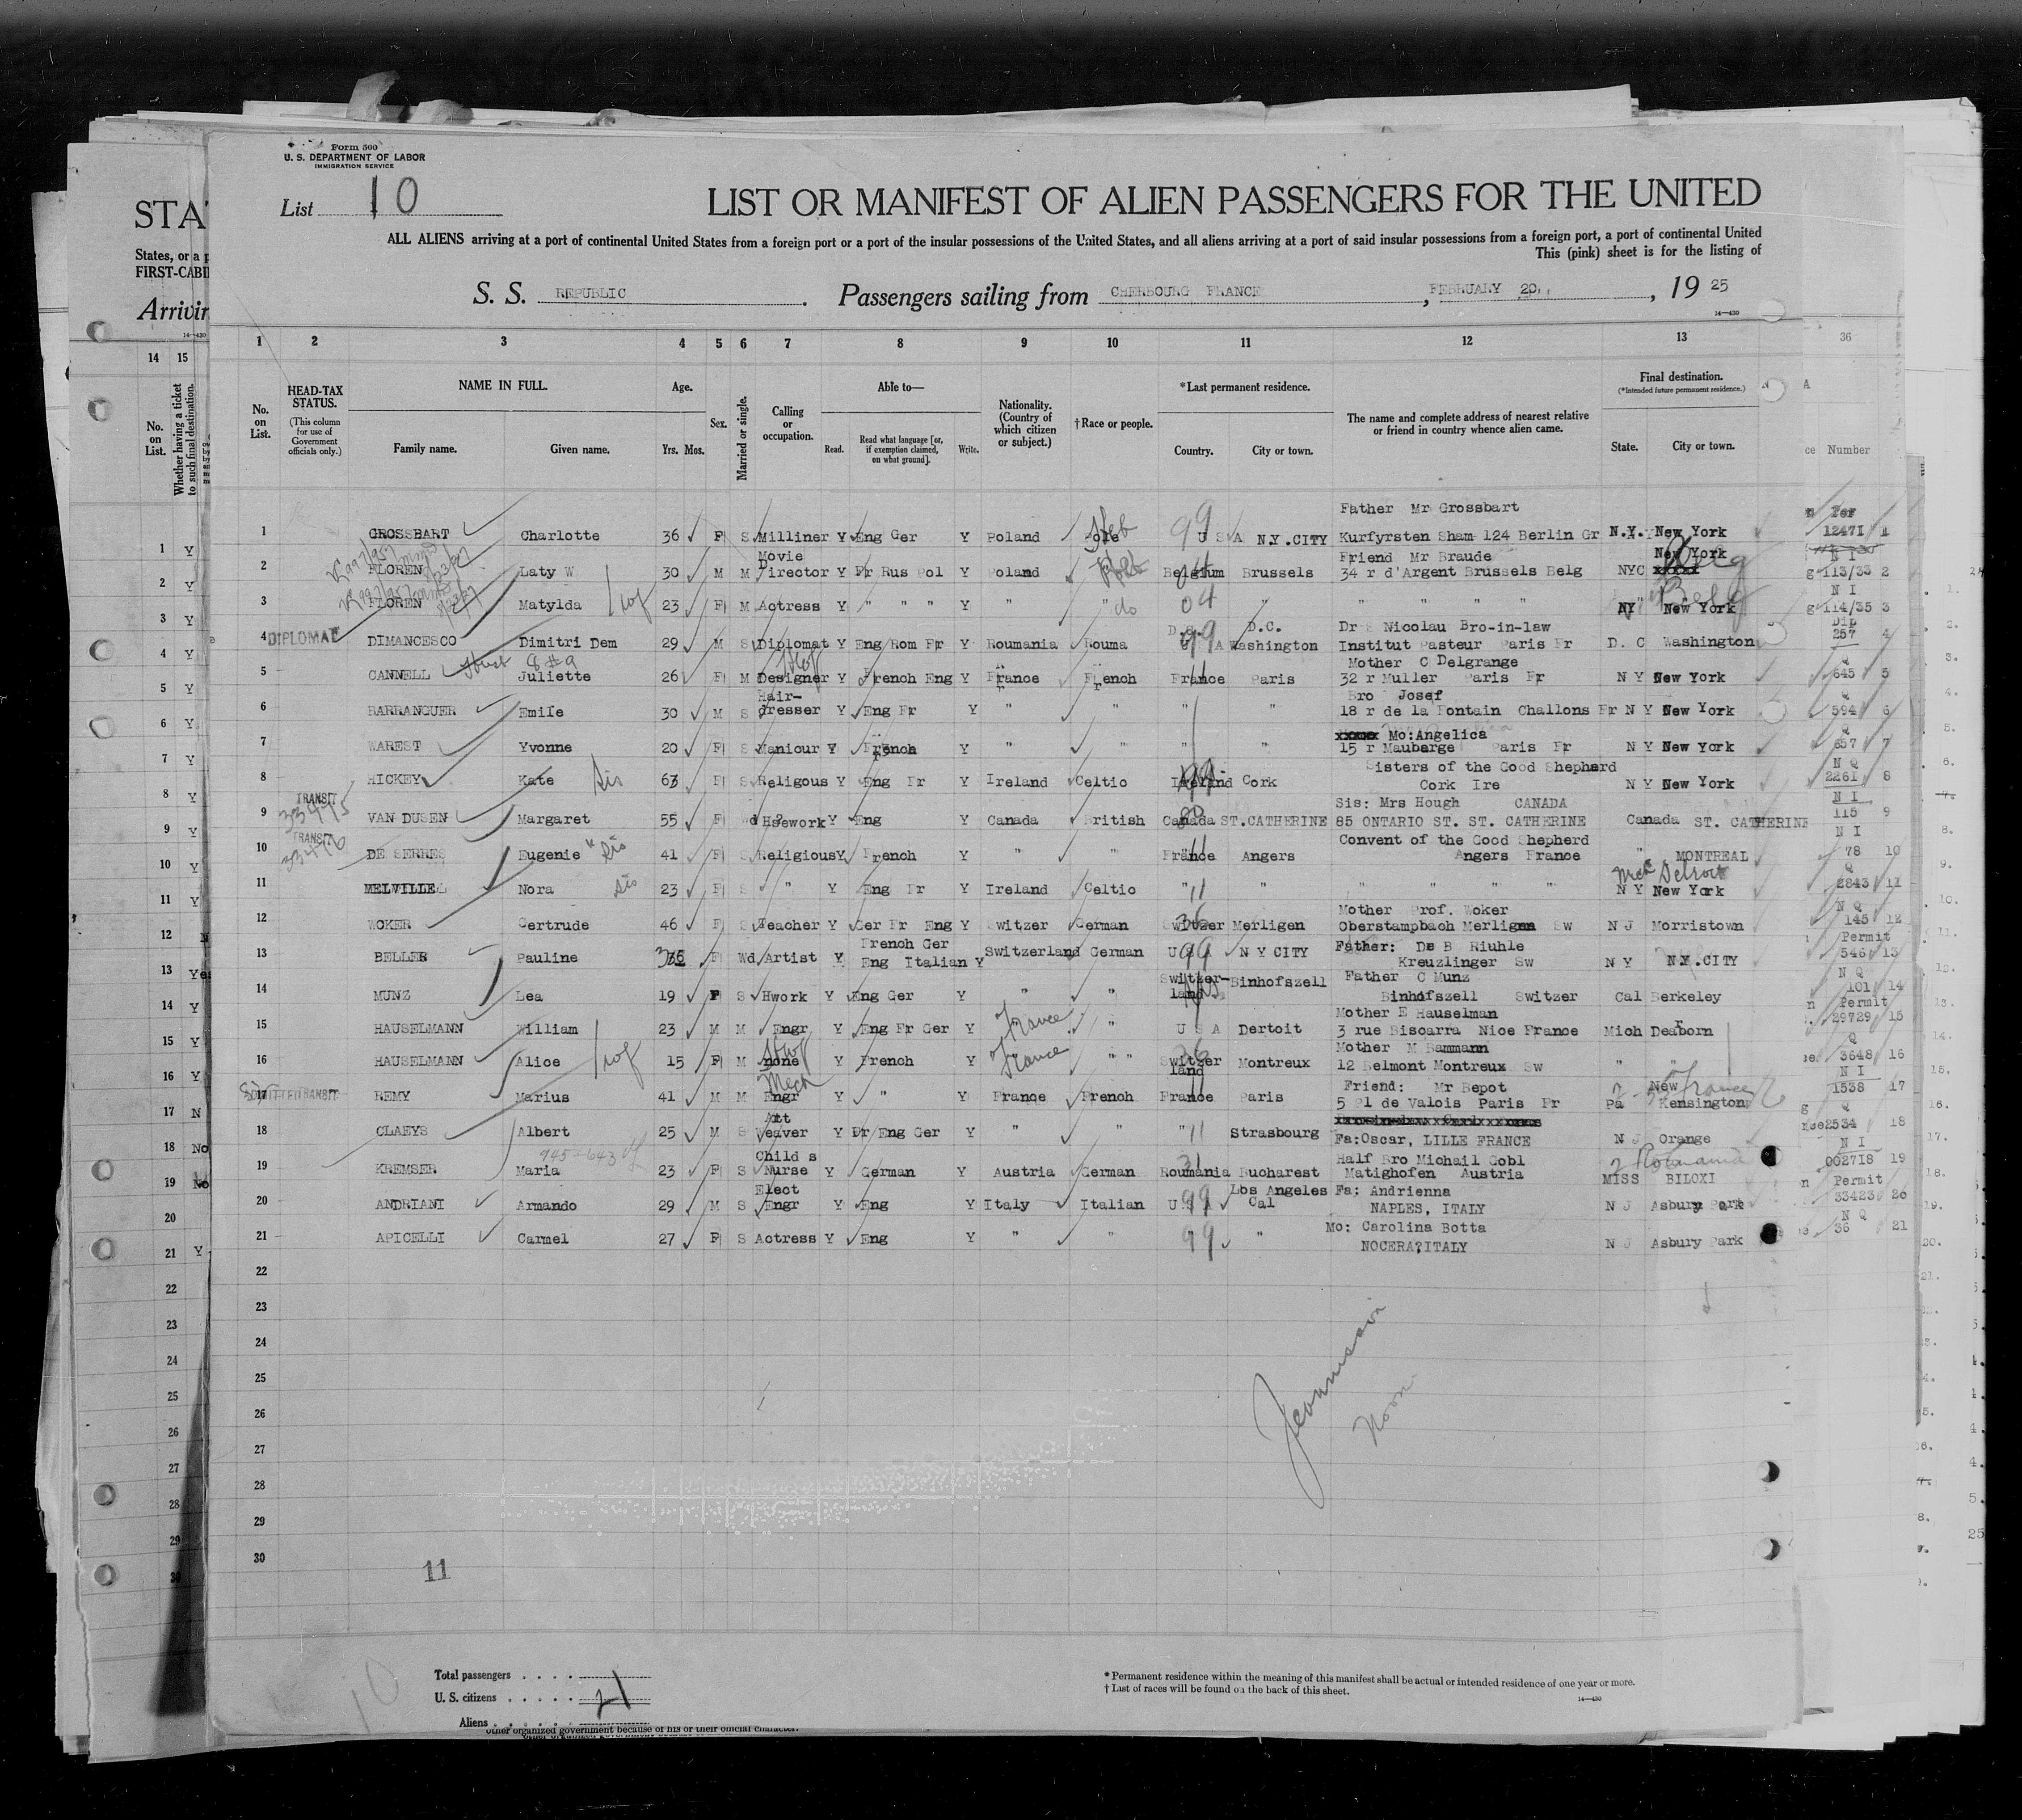 Form 500
U. S. DEPARTMENT OF LABOR
IMMIGRATION SERVICE
List 10
LIST OR MANIFEST OF ALIEN PASSENGERS FOR THE UNITED
STA
ALL ALIENS arriving at a port of continental United States from a foreign port or a port of the insular possessions of the United States, and all aliens arriving at a port of said insular possessions from a foreign port, a port of continental United
States, or a p
This (pink) sheet is for the listing of
FIRST-CABI
S. S. REPUBLIC. Passengers sailing from CHERBOURG FRANCE, FEBRUARY 20, , 19 25
Arrivin
14—430
1 2 3 4 5 6 7 8 9 10 11 12 13 36
14 15
No. on List.
HEAD-TAX STATUS.
(This column for use of Government officials only.)
NAME IN FULL.
Family name. Given name.
Age.
Yrs. Mos.
Sex.
Married or single.
Calling or occupation.
Able to—
Read. Read what language [or, if exemption claimed, on what ground]. Write.
Nationality. (Country of which citizen or subject.)
†Race or people.
*Last permanent residence.
Country. City or town.
The name and complete address of nearest relative or friend in country whence alien came.
Final destination.
(*Intended future permanent residence.)
State. City or town.
Number
No. on List.
Whether having a ticket to such final destination.
Father Mr Grossbart
1 GROSSBART Charlotte 36 F S Milliner Y Eng Ger Y Poland Pole Heb 99 U S A N.Y.CITY Kurfyrsten Sham 124 Berlin Gr N.Y. New York 12471 1
Movie Friend Mr Braude New York N I
2 FLOREN Laty W 30 M M Director Y Fr Rus Pol Y Poland Belgium Brussels 34 r d'Argent Brussels Belg NYC xxxxx Belg 113/33 2
3 FLOREN Matylda wf 23 F M Actress Y " " " Y " " do 04 " " " " " NY New York Belg 114/35 3
D.C. Dr S Nicolau Bro-in-law Dip 257
4 DIPLOMAT DIMANCESCO Dimitri Dem 29 M S Diplomat Y Eng Rom Fr Y Roumania Rouma 99 Washington Institut Pasteur Paris Fr D. C Washington 4
Mother C Delgrange Q
5 CANNELL Juliette 26 F M Designer Y French Eng Y France French France Paris 32 r Muller Paris Fr N Y New York 645 5
Hair- Bro Josef Q
6 BARRANGUER Emile 30 M S dresser Y Eng Fr Y " " " " 18 r de la Fontain Challons Fr N Y New York 594 6
Mo:Angelica Q
7 WAREST Yvonne 20 F S Manicur Y French Y " " " " 15 r Maubarge Paris Fr N Y New York 657 7
Sisters of the Good Shepherd N Q
8 HICKEY Kate Sis 63 F S Religous Y Eng Fr Y Ireland Celtic Ireland Cork Cork Ire N Y New York 2261 8
TRANSIT 33475 Sis: Mrs Hough CANADA N I
9 VAN DUSEN Margaret 55 F Wd Hsework Y Eng Y Canada British Canada ST.CATHERINE 85 ONTARIO ST. ST. CATHERINE Canada ST. CATHERINE 115 9
TRANSIT 33476 Convent of the Good Shepherd N I
10 DE SERRES Eugenie Sis 41 F S Religious Y French Y " " France Angers Angers France " MONTREAL 78 10
Mich Detroit Q
11 MELVILLE Nora Sis 23 F S " Y Eng Fr Y Ireland Celtic " " " " " " N Y New York 2843 11
Mother Prof. Woker N Q
12 WOKER Gertrude 46 F S Teacher Y Ger Fr Eng Y Switzer German Switzer Merligen Oberstampbach Merligen Sw N J Morristown 145 12
French Ger Father: De B Riuhle Permit
13 BELLER Pauline 36 F Wd Artist Y Eng Italian Y Switzerland German U S A N Y CITY Kreuzlinger Sw N Y N.Y.CITY 546 13
Father C Munz N Q
14 MUNZ Lea 19 F S Hwork Y Eng Ger Y " " Switzer-land Binhofszell Binhofszell Switzer Cal Berkeley 101 14
Mother E Hauselman Permit
15 HAUSELMANN William 23 M M Engr Y Eng Fr Ger Y France " U S A Dertoit 3 rue Biscarra Nice France Mich Dearborn 29729 15
Mother M Rammann Q
16 HAUSELMANN Alice wf 15 F M none Y French Y France " " Switzer land Montreux 12 Belmont Montreux Sw " " 3648 16
Mech Friend: Mr Bepot New France N I
17 REMY Marius 41 M M Engr Y " Y France French France Paris 5 Pl de Valois Paris Fr Pa Kensington 1538 17
Art Q
18 CLAEYS Albert 25 M S Weaver Y Fr Eng Ger Y " " " Strasbourg Fa:Oscar, LILLE FRANCE N J Orange 2534 18
Child s Half Bro Michail Gobl Roumania N I
19 KREMSER Maria 23 F S Nurse Y German Y Austria German Roumania Bucharest Matighofen Austria MISS BILOXI 002718 19
Elect Los Angeles Fa: Andrienna Permit
20 ANDRIANI Armando 29 M S Engr Y Eng Y Italy Italian U S A Cal NAPLES, ITALY N J Asbury Park 33423 20
Mo: Carolina Botta N Q
21 APICELLI Carmel 27 F S Actress Y Eng Y " " 99 " NOCERA?ITALY N J Asbury Park 36 21
22
23
24
25
26
27
28
29
30
Noon
11
10
Total passengers . . . .
U. S. citizens . . . . . 21
Aliens
* Permanent residence within the meaning of this manifest shall be actual or intended residence of one year or more.
† List of races will be found on the back of this sheet.
14—430
other organized government because of his or their official character.